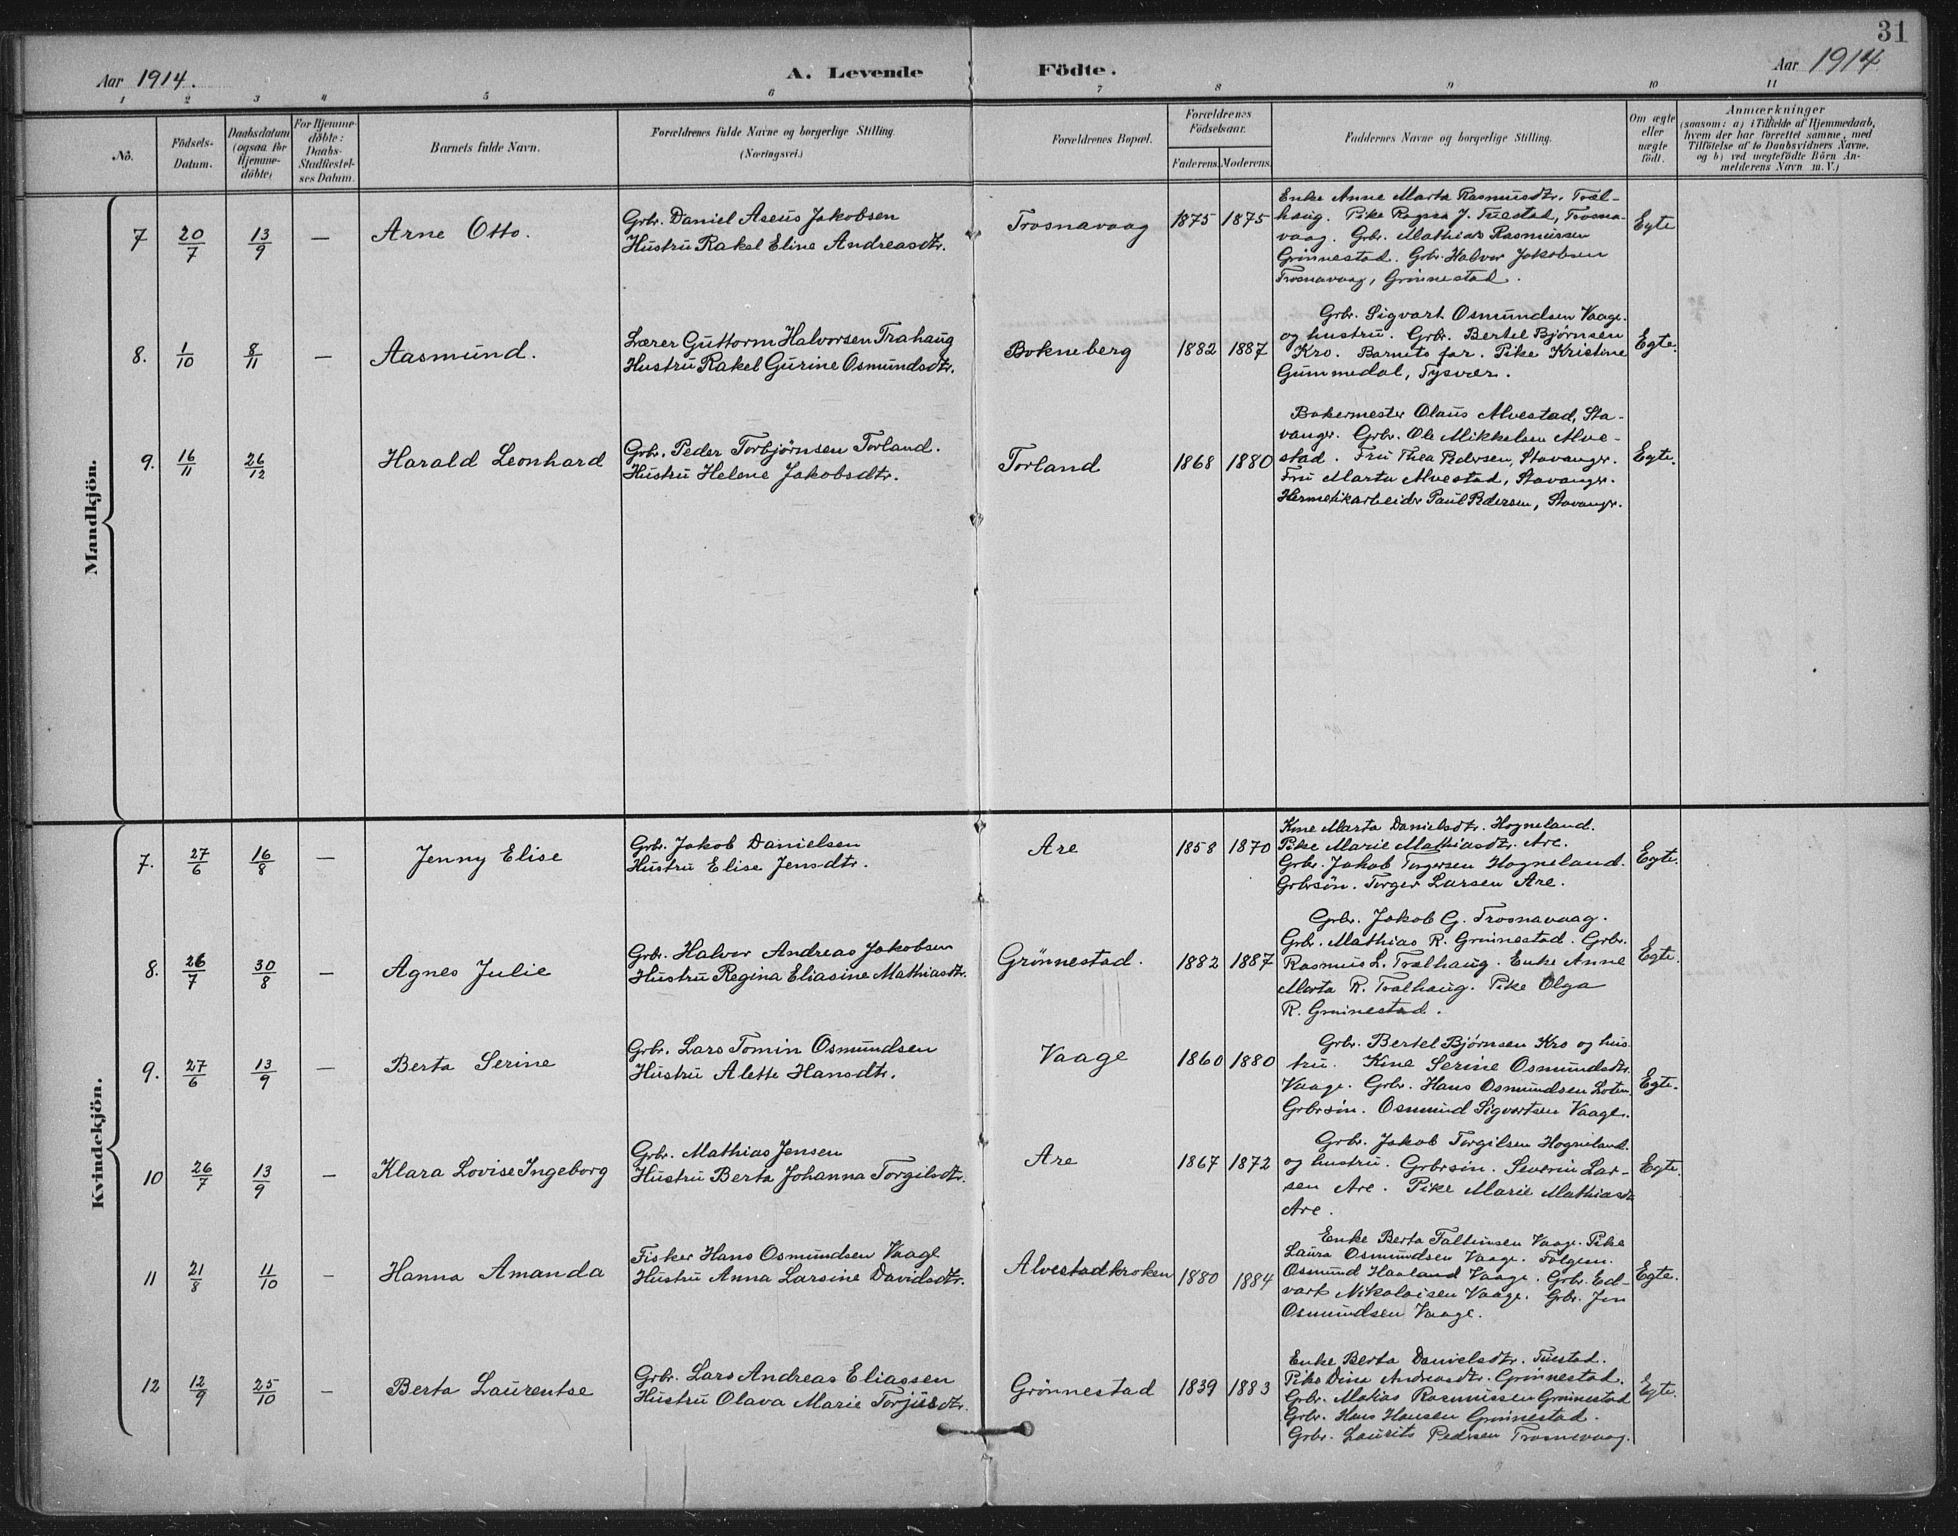 31
Aar 1914.
A. Levende Födte.
Aar 1914
1 2 3 4 5 6 7 8 9 10 11
No.
Födsels-Datum.
Daabsdatum (ogsaa for Hjemme-döbte)
For Hjemme-döbte: Daabs-Stadfæstel-ses Datum.
Barnets fulde Navn.
Forældrenes fulde Navne og borgerlige Stilling.
(Næringsvei.)
Forældrenes Bopæl.
Forældrenes Födselsaar.
Faderens. Moderens.
Faddernes Navne og borgerlige Stilling.
Om ægte eller uægte födt.
Anmærkninger
(saasom: a) i Tilfælde af Hjemmedaab,
hvem der har forrettet samme, med
Tilföielse af to Daabsvidners Navne,
og b) ved uegtefödte Börn An-
melderens Navn m. V.)
Mandkjön.
7 20/7 13/9 — Arne Otto.
Grbr. Daniel Aseus Jakobsen
Hustru Rakel Eline Andreasdtr.
Trosnavaag 1875 1875
Enke Anne Marta Rasmusdtr. Træl-
haug. Pike Ragna J. Tuestad, Trosna-
vaag. Grbr. Mathias Rasmussen
Grönnestad. Grbr. Halvor Jakobsen
Trosnavaag, Grönnestad.
Egte
8. 1/10 8/11 — Aasmund.
Lærer Guttorm Halvorsen Trahaug
Hustru Rakel Gurine Osmundsdtr.
Bokneberg 1882 1887
Grbr. Sigvart Osmundsen Vaage.
og hustru. Grbr. Bertel Bjørnsen
Kro. Barnets far. Pike Kristine
Gummedal, Tysvær.
Egte.
9. 16/11 26/12 Harald Leonhard
Grbr. Peder Torbjörnsen Torland.
Hustru Helene Jakobsdtr.
Torland 1868 1880
Bakermester Olaus Alvestad, Sta-
vanger. Grbr. Ole Mikkelsen Alve-
stad. Fru Thea Pedersen, Stavanger.
Fru Marta Alvestad, Stavanger.
Hermetikarbeider Paul Pedersen, Stavanger.
Egte.
Kvindekjön.
7. 27/6 16/8 — Jenny Elise
Grbr. Jakob Danielsen
Hustru Elise Jensdtr.
Are 1858 1870
Kone Marta Danielsdtr. Hogneland.
Pike Marie Mathiasdtr. Are.
Grbr. Jakob Torgersen Hogneland.
Grbrsön. Torger Larsen Are.
Egte.
8. 26/7 30/8 — Agnes Julie
Grbr. Halvor Andreas Jakobsen
Hustru Regina Eliasine Mathiasdtr.
Grönnestad. 1882 1887
Grbr. Jakob G. Trosnavaag.
Grbr. Mathias R. Grönnestad. Grbr.
Rasmus L. Trælhaug. Enke Anne
Marta R. Trælhaug. Pike Olga
R. Grönnestad.
Egte.
9. 27/6 13/9 — Berta Serine
Grbr. Lars Tomin Osmundsen
Hustru Alette Hansdtr.
Vaage 1860 1880
Grbr. Bertel Bjørnsen Kro og hus-
tru. Kone Serine Osmundsdtr.
Vaage. Grbr. Hans Osmundsen Loten.
Grbrsön. Osmund Sigvartsen Vaage.
Egte.
10 26/7 13/9 — Klara Lovise Ingeborg
Grbr. Mathias Jensen
Hustru Berta Johanna Torgilsdtr.
Are 1867 1872
Grbr. Jakob Torgilsen Hogneland.
og hustru. Grbrsön. Severin Lar-
sen Are. Pike Marie Mathiasdtr.
Are.
Egte.
11 21/8 11/10 — Hanna Amanda
Fisker Hans Osmundsen Vaage
Hustru Anna Larsine Davidsdtr.
Alvestadkroken 1880 1884
Enke Berta Taltinsen Vaage. Pike
Laura Osmundsen Vaage.
Osmund Haaland Vaage. Grbr. Ed-
vart Nikolaisen Vaage. Grbr. Jon
Osmundsen Vaage.
Egte.
12 12/9 25/10 — Berta Laurentse
Grbr. Lars Andreas Eliassen
Hustru Olava Marie Torjusdtr.
Grönnestad 1839 1883
Enke Berta Danielsdtr. Tuestad.
Pike Dine Andreasdtr. Grönnestad.
Grbr. Matias Rasmussen Grönnestad
Grbr. Hans Hansen Grönnestad.
Grbr. Laurits Pedersen Trosnevaag.
Egte.